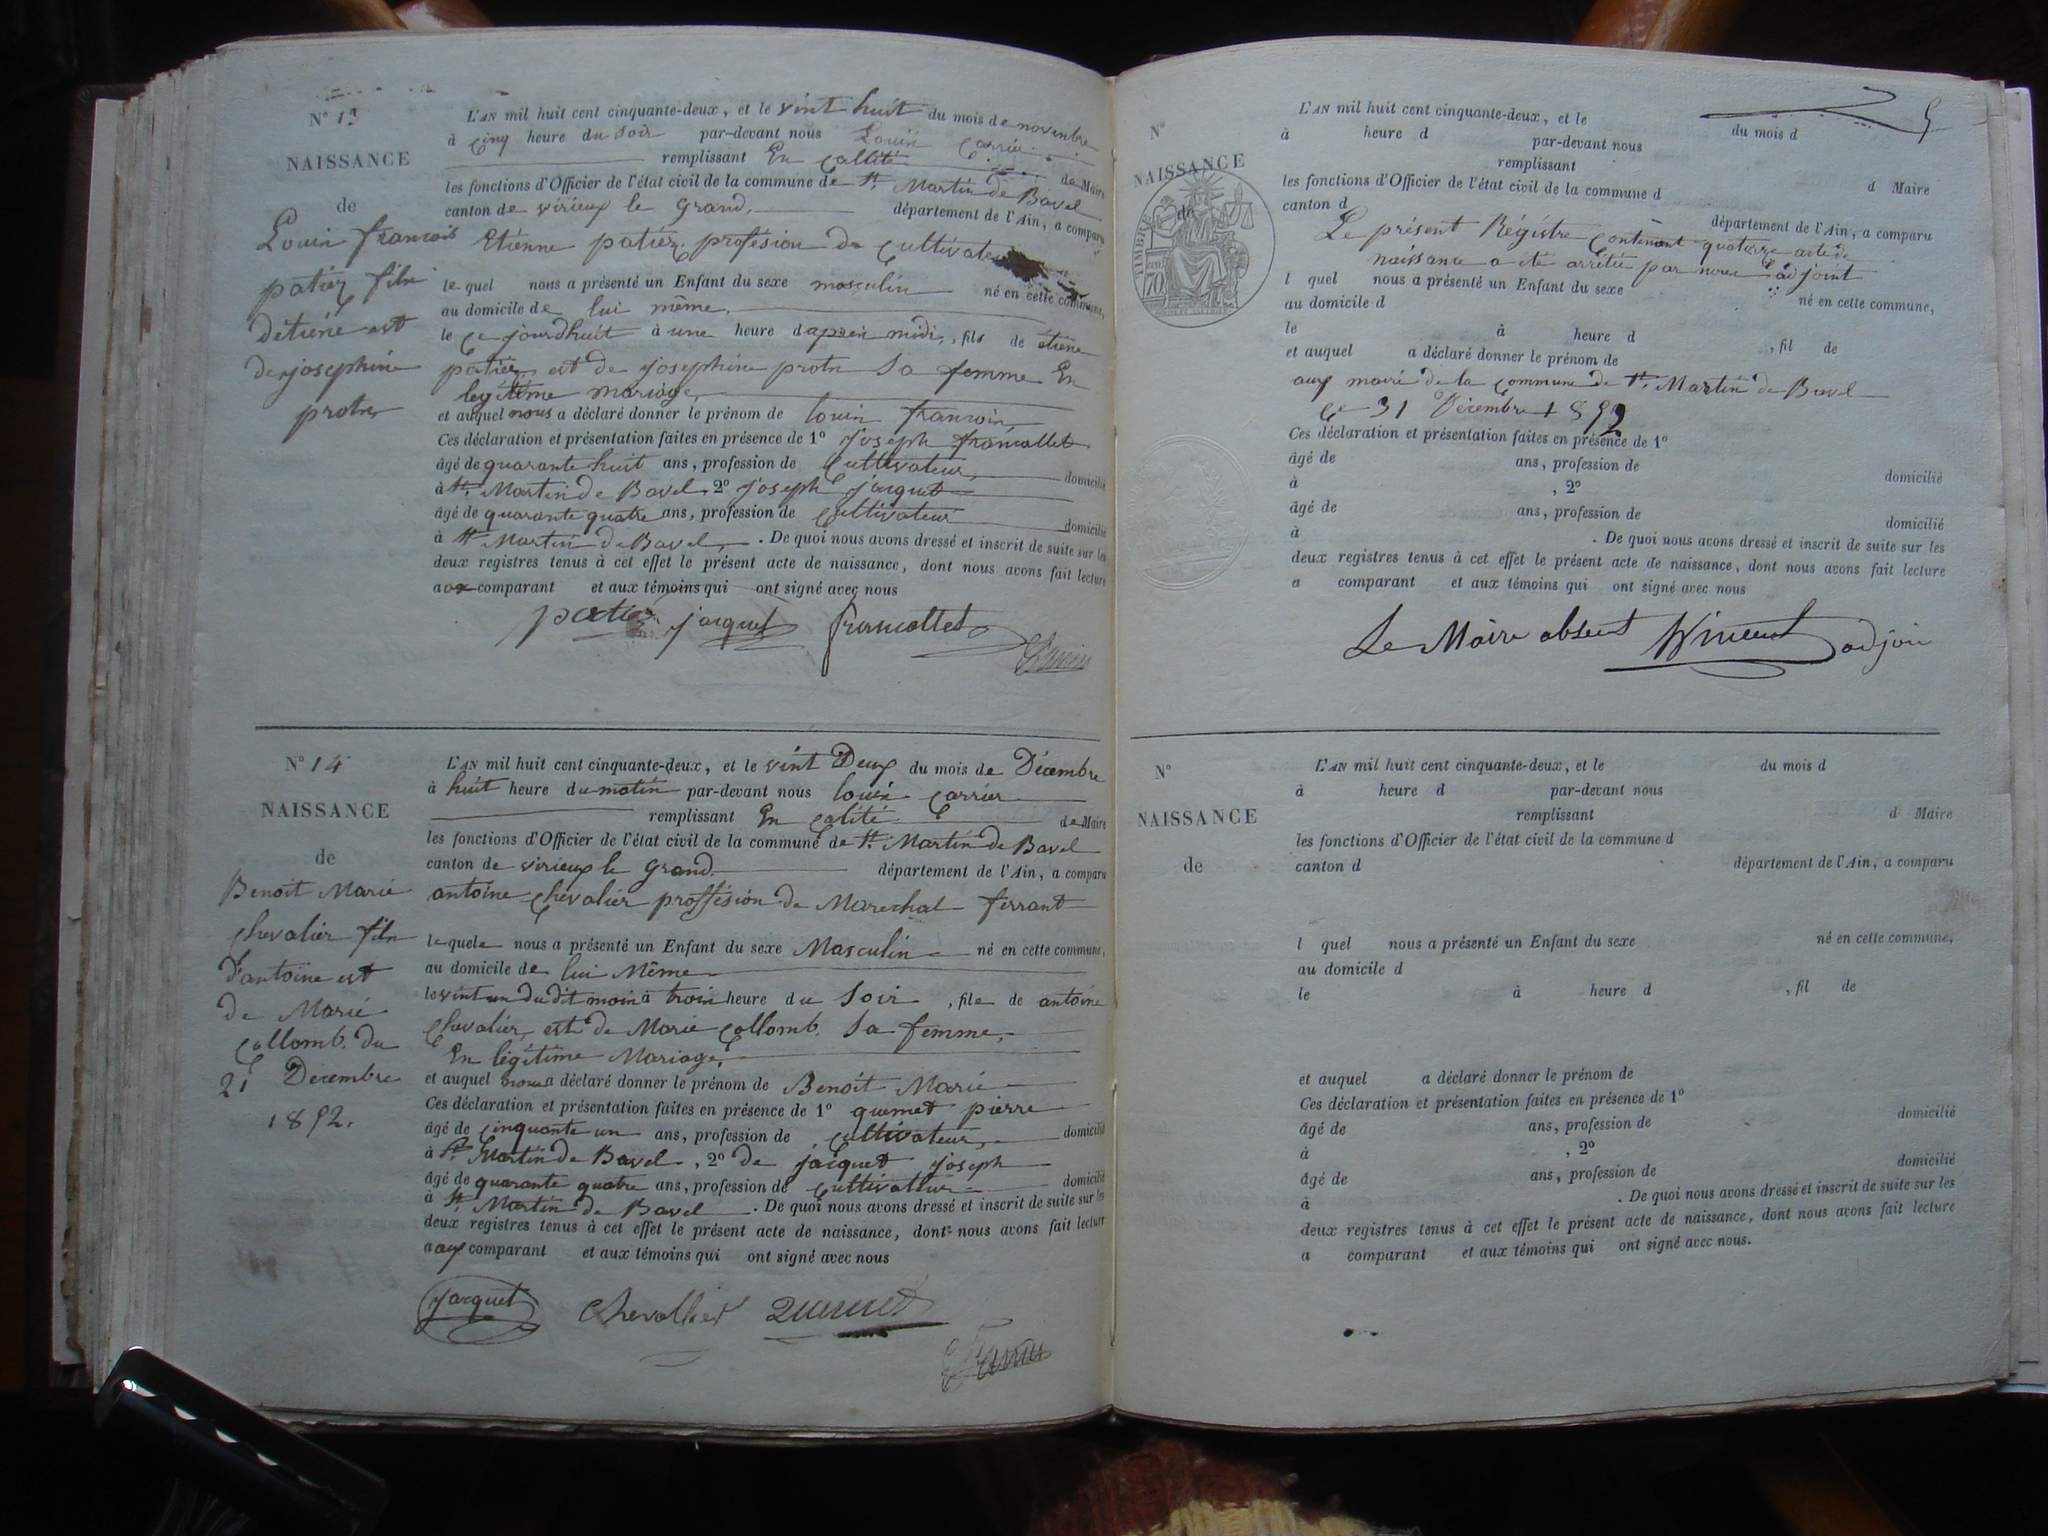 N° 13
NAISSANCE
de
Louis francois
patiez fils
détiéne est
de josephine
protns
L'AN mil huit cent cinquante-deux, et le vint huit du mois de novembre
à cinq heure du soir par-devant nous Louis Carrier
remplissant En callité de Maire
les fonctions d'Officier de l'état civil de la commune de St Martin de Bavel
canton de virieux le grand, département de l'Ain, a comparu
Etiénne patiez profésion de cultivateur
le quel nous a présenté un Enfant du sexe masculin né en cette commune,
au domicile de lui même,
le ce jourdhuit à une heure d aprés midi, fils de étiéne
patiez est de josephine protn sa femme En
legitime mariage,
et auquel nous a déclaré donner le prénom de louis francois,
Ces déclaration et présentation faites en présence de 1° joseph francollet
âgé de quarante huit ans, profession de Cultivateur, domicilié
à St Martin de Bavel, 2° joseph jacquet
âgé de quarante quatre ans, profession de Cultivateur domicilié
à St Martin de Bavel, . De quoi nous avons dressé et inscrit de suite sur les
deux registres tenus à cet effet le présent acte de naissance, dont nous avons fait lecture
aux comparant et aux témoins qui ont signé avec nous
patiez jacquet francollet
Carrier
N° 14
NAISSANCE
de
Benoit Marie
chevalier fils
d'antoine est
de Marie
Collomb. du
21 Decembre
1852.
L'AN mil huit cent cinquante-deux, et le vint Deux du mois de Décembre
à huit heure du matin par-devant nous louis Carrier
remplissant En calité de Maire
les fonctions d'Officier de l'état civil de la commune de St Martin de Bavel
canton de virieux le Grand. département de l'Ain, a comparu
antoine chevalier proffésion de Marechal ferrant
le quele nous a présenté un Enfant du sexe Masculin né en cette commune,
au domicile de lui Même
le vint un du dit mois à trois heure du Soir , fils de antoine
Chevalier, est de Marie Collomb. Sa femme,
En légitime Mariage,
et auquel nous a déclaré donner le prénom de Benoit Marie
Ces déclaration et présentation faites en présence de 1° quemet pierre
âgé de Cinquante un ans, profession de Cultivateur, domicilié
à St Martin de Bavel , 2° de jacquet joseph
âgé de quarante quatre ans, profession de Cultivateur domicilié
à St Martin de Bavel . De quoi nous avons dressé et inscrit de suite sur les
deux registres tenus à cet effet le présent acte de naissance, dont nous avons fait lecture
a aux comparant et aux témoins qui ont signé avec nous
jacquet Chevallier Quemet
Carrier
5
N°
NAISSANCE
de
TIMBRE
70
L'AN mil huit cent cinquante-deux, et le du mois d
à heure d par-devant nous
remplissant d Maire
les fonctions d'Officier de l'état civil de la commune d
canton d département de l'Ain, a comparu
Le présent Régistre contenant quatorze acte de
naissance a été arrétée par nous adjoint
l quel nous a présenté un Enfant du sexe né en cette commune,
au domicile d
le à heure d , fil de
et auquel a déclaré donner le prénom de
aux mairie de la Commune de St Martin de Bavel
Ce 31 Décembre 1852
Ces déclaration et présentation faites en présence de 1°
âgé de ans, profession de domicilié
à , 2°
âgé de ans, profession de domicilié
à . De quoi nous avons dressé et inscrit de suite sur les
deux registres tenus à cet effet le présent acte de naissance, dont nous avons fait lecture
a comparant et aux témoins qui ont signé avec nous
Le Maire absent Vincent adjoin
N°
NAISSANCE
de
L'AN mil huit cent cinquante-deux, et le du mois d
à heure d par-devant nous
remplissant d Maire
les fonctions d'Officier de l'état civil de la commune d
canton d département de l'Ain, a comparu
l quel nous a présenté un Enfant du sexe né en cette commune,
au domicile d
le à heure d , fil de
et auquel a déclaré donner le prénom de
Ces déclaration et présentation faites en présence de 1°
âgé de ans, profession de domicilié
à , 2°
âgé de ans, profession de domicilié
à . De quoi nous avons dressé et inscrit de suite sur les
deux registres tenus à cet effet le présent acte de naissance, dont nous avons fait lecture
a comparant et aux témoins qui ont signé avec nous.